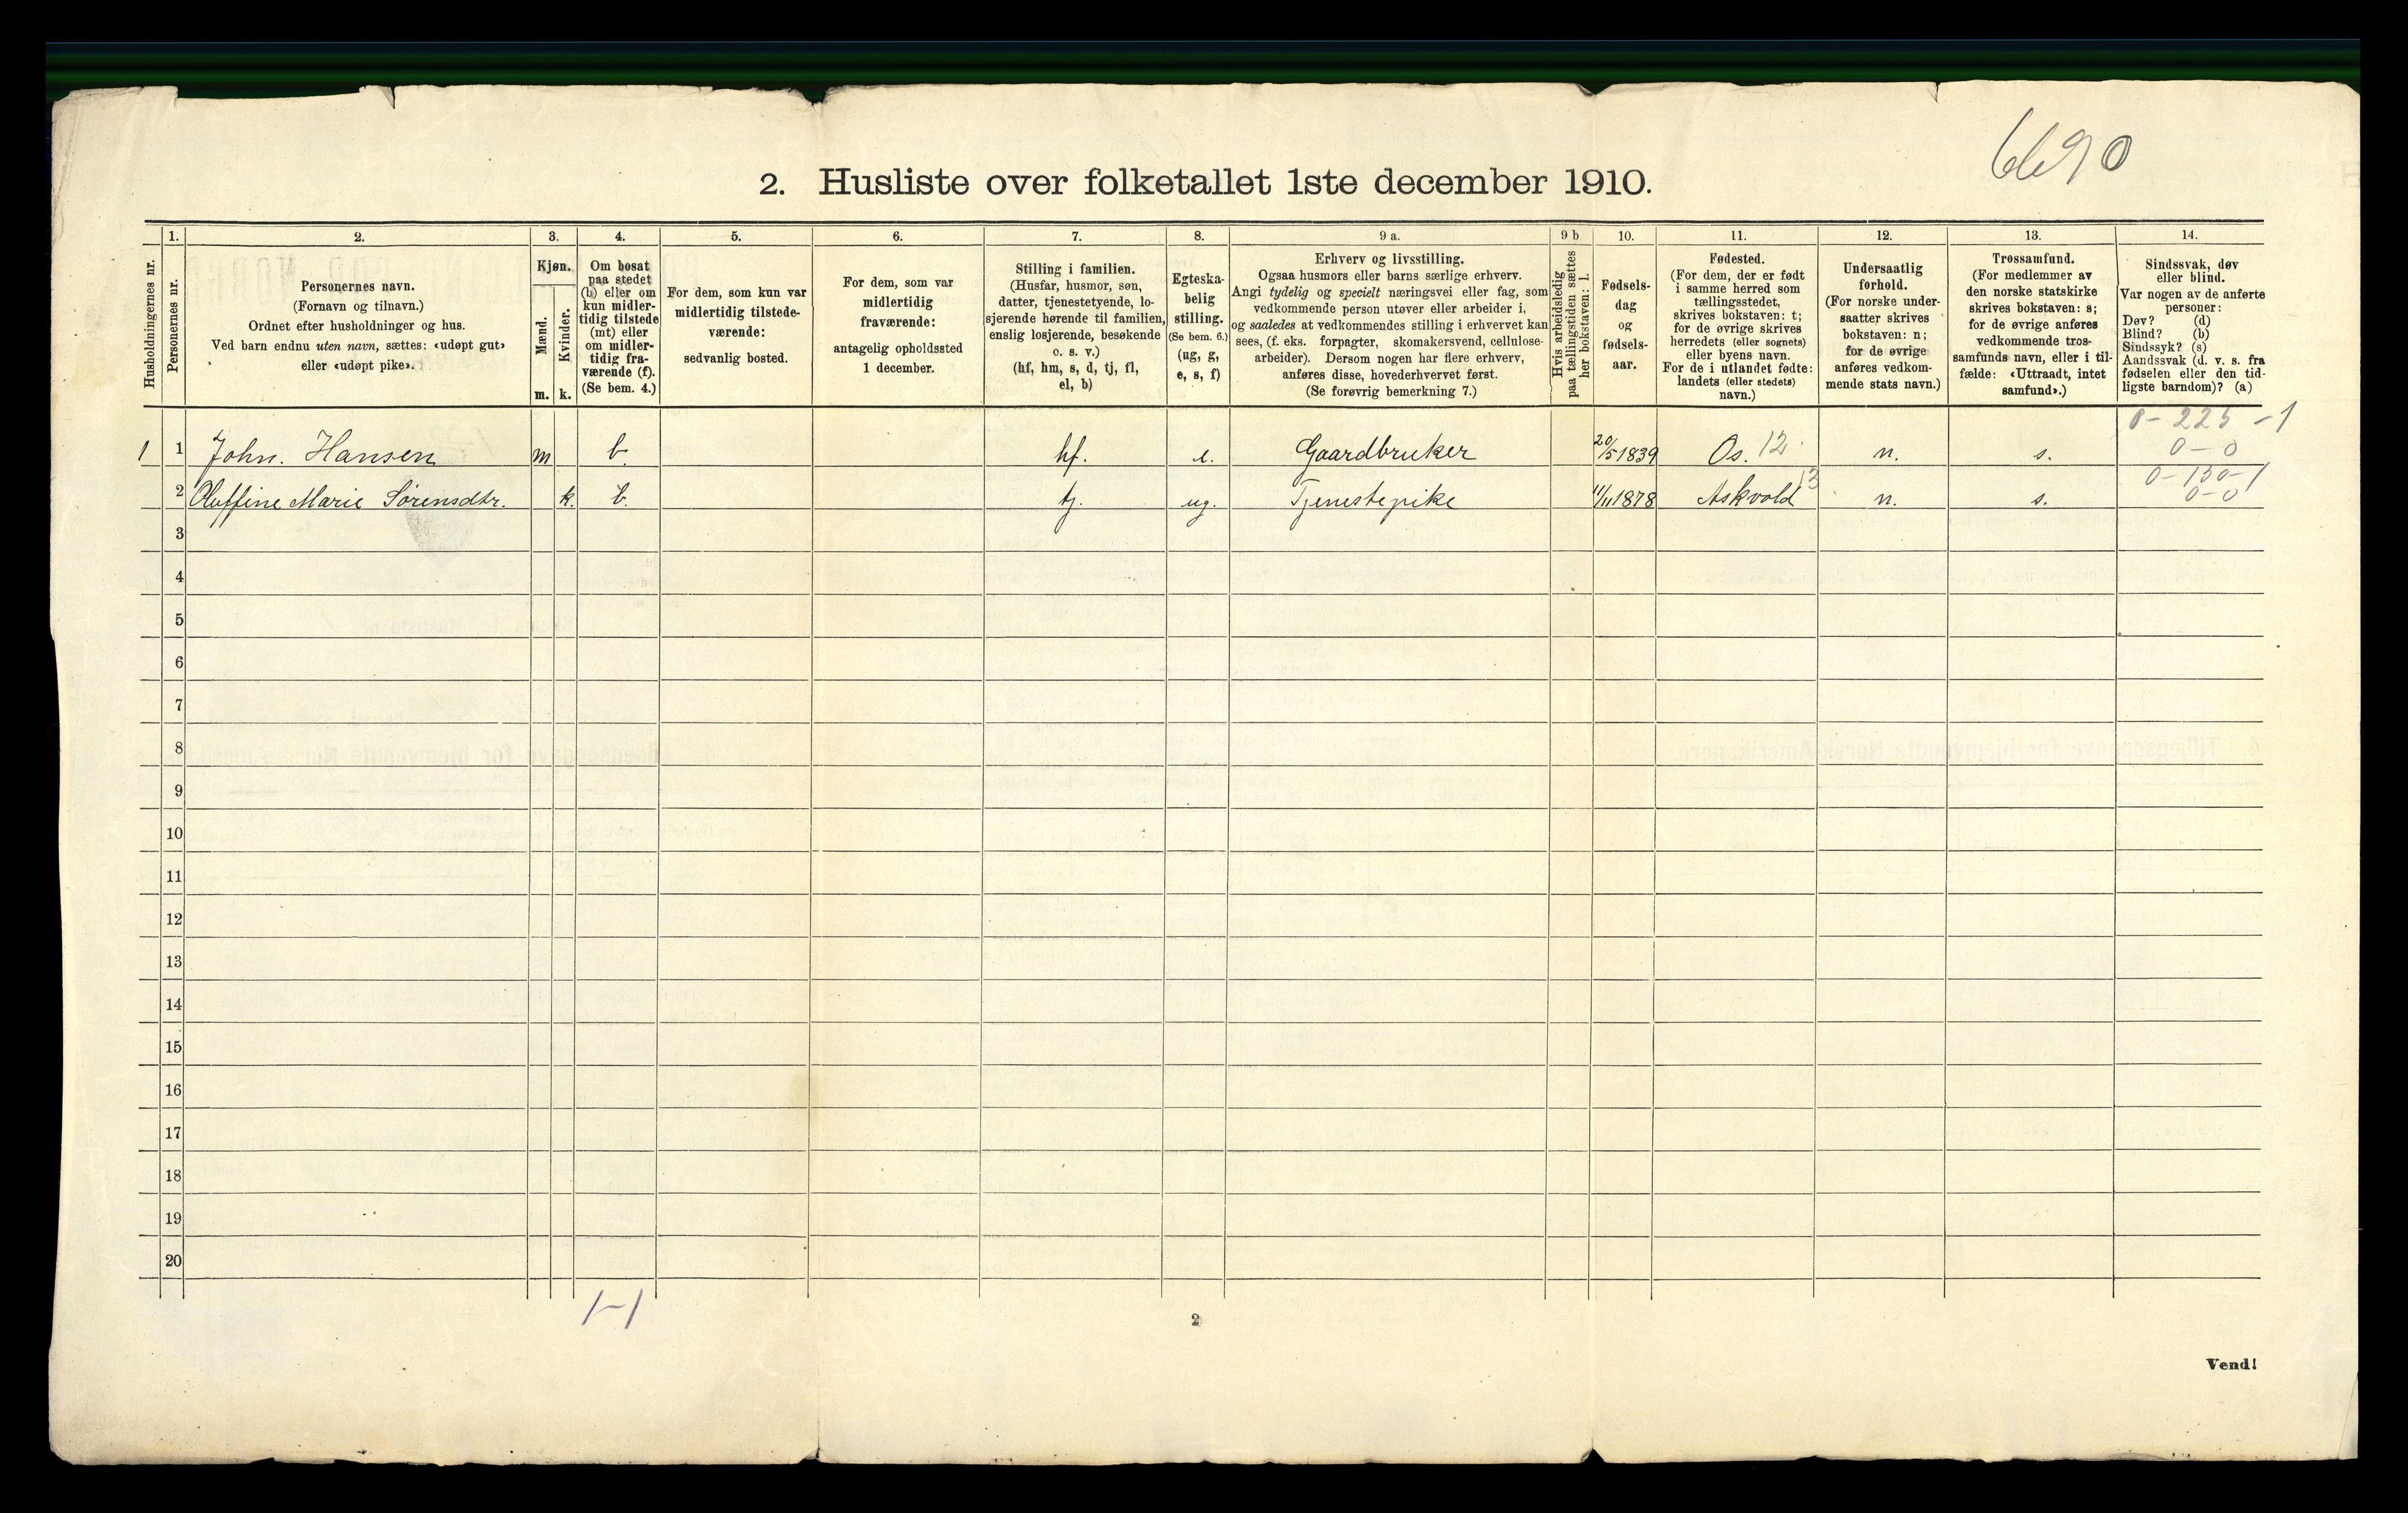 6690
2. Husliste over folketallet 1ste december 1910.
Husholdningernes nr.
1.
Personernes nr.
2.
Personernes navn.
(Fornavn og tilnavn.)
Ordnet efter husholdninger og hus.
Ved barn endnu uten navn, sættes: «udøpt gut»
eller «udøpt pike».
3.
Kjøn.
Mænd.
Kvinder.
m. k.
4.
Om bosat
paa stedet
(b) eller om
kun midler-
tidig tilstede
(mt) eller
om midler-
tidig fra-
værende (f).
(Se bem. 4.)
5.
For dem, som kun var
midlertidig tilstede-
værende:
sedvanlig bosted.
6.
For dem, som var
midlertidig
fraværende:
antagelig opholdssted
1 december.
7.
Stilling i familien.
(Husfar, husmor, søn,
datter, tjenestetyende, lo-
sjerende hørende til familien,
enslig losjerende, besøkende
o. s. v.)
(hf, hm, s, d, tj, fl,
el, b)
8.
Egteska-
belig
stilling.
(Se bem. 6.)
(ug, g,
e, s, f)
9 a.
Erhverv og livsstilling.
Ogsaa husmors eller barns særlige erhverv.
Angi tydelig og specielt næringsvei eller fag, som
vedkommende person utøver eller arbeider i,
og saaledes at vedkommendes stilling i erhvervet kan
sees, (f. eks. forpagter, skomakersvend, cellulose-
arbeider). Dersom nogen har flere erhverv,
anføres disse, hovederhvervet først.
(Se forøvrig bemerkning 7.)
9 b
Hvis arbeidsledig
paa tællingstiden sættes
her bokstaven: l.
10.
Fødsels-
dag
og
fødsels-
aar.
11.
Fødested.
(For dem, der er født
i samme herred som
tællingsstedet,
skrives bokstaven: t;
for de øvrige skrives
herredets (eller sognets)
eller byens navn.
For de i utlandet fødte:
landets (eller stedets)
navn.)
12.
Undersaatlig
forhold.
(For norske under-
saatter skrives
bokstaven: n;
for de øvrige
anføres vedkom-
mende stats navn.)
13.
Trossamfund.
(For medlemmer av
den norske statskirke
skrives bokstaven: s;
for de øvrige anføres
vedkommende tros-
samfunds navn, eller i til-
fælde: «Uttraadt, intet
samfund».)
14.
Sindssvak, døv
eller blind.
Var nogen av de anførte
personer:
Døv? (d)
Blind? (b)
Sindssyk? (s)
Aandssvak (d. v. s. fra
fødselen eller den tid-
ligste barndom)? (a)
0-225-1
1 1 John. Hansen m b. hf. e. Gaardbruker 20/5 1839 Os. 12 n. s. 0-0
0-130-1
2 Oluffine Marie Sørensdtr. k. b. tj. ug. Tjenestepike 11/11 1878 Askvold 13 n. s. 0-0
3
4
5
6
7
8
9
10
11
12
13
14
15
16
17
18
19
20
1-1
2
Vend!